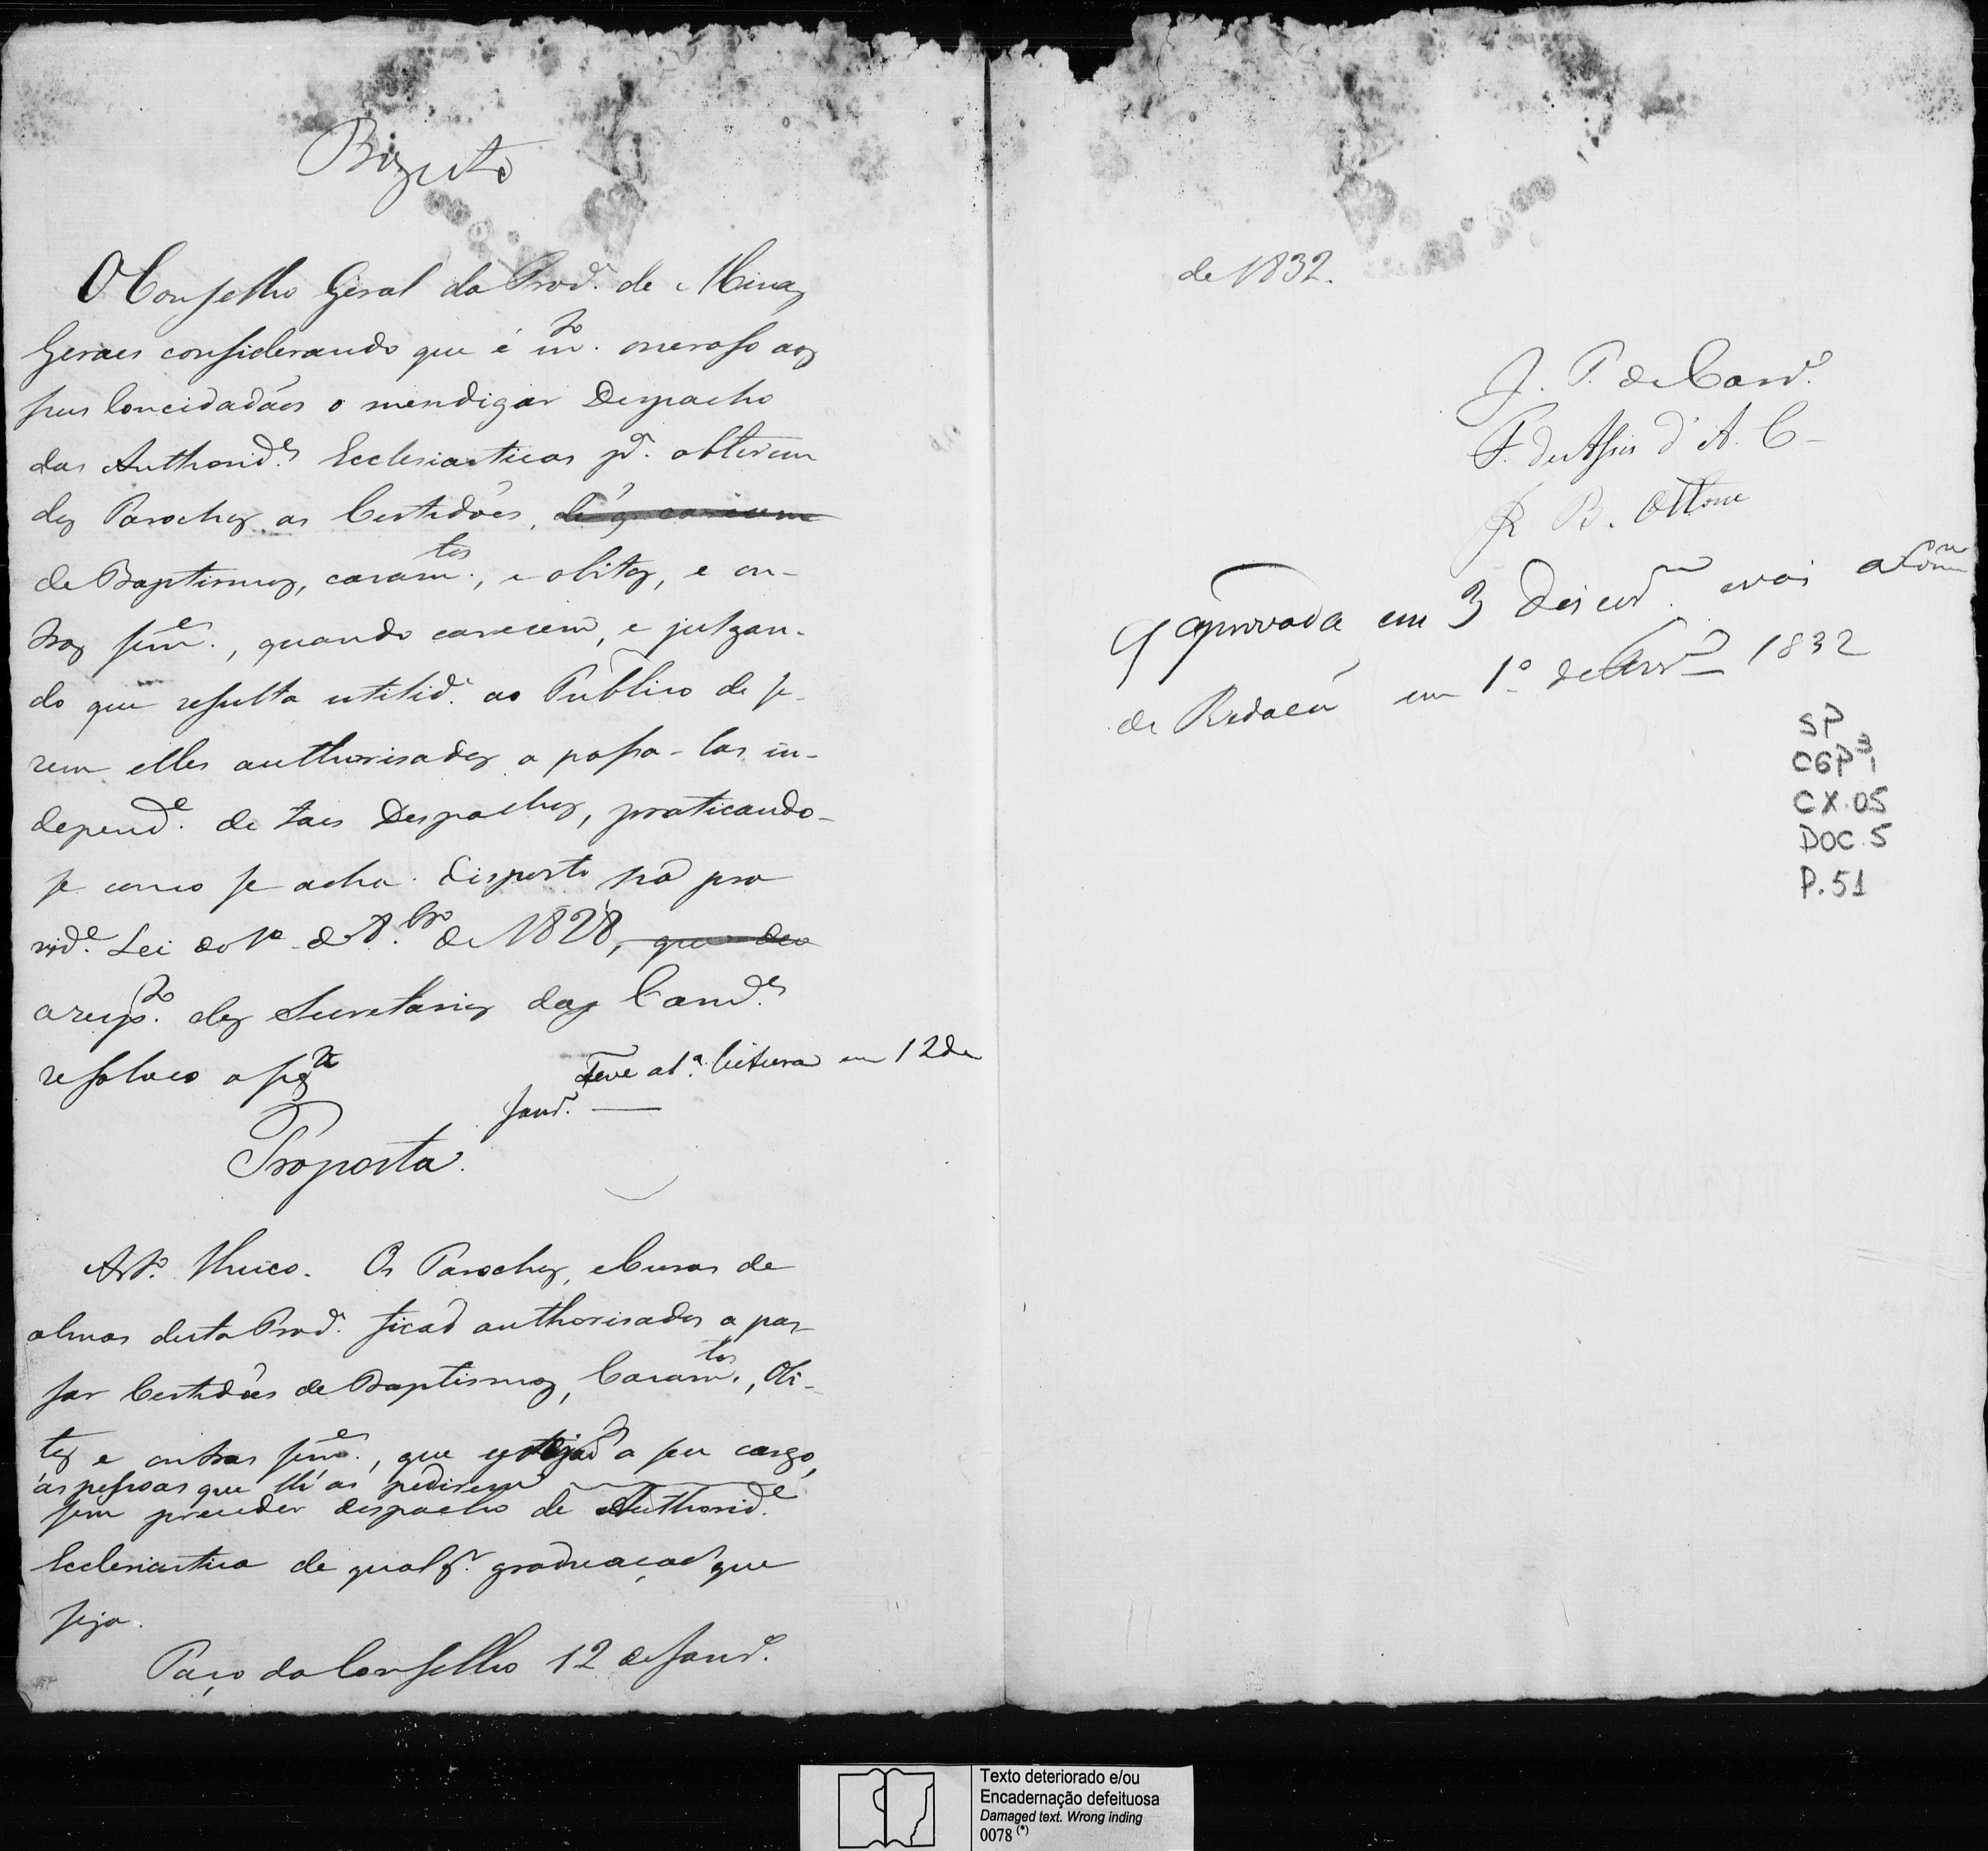 O Conselho Geral da Prov.ª de Minas
Geraes considerando que é m.to oneroso aos
seus Concidadãos o mendigar Despacho
das Authorid.es Ecclesiasticas p.ª obterem
dos Parochos as Certidões, de q carecem
de Baptismos, casam.tos, e obitos, e ou-
tros sem.es, quando carecem, e julgan-
do que resulta utilid.e ao Publico de se-
rem elles authorisados a passa-las in-
depend.e de taes Despachos, praticando-
se como se acha disposto na pro
vid.e Lei do 1º de 8.bro de 1828, que deu
a resp.to dos Secretarios das Cam.es
resolveo a seg.te
Teve a 1.ª leitura em 12 de
Janr.º
Proposta.
Art.º Unico. Os Parochos, e Curas de
almas desta Prov.ª ficaõ authorisados a pas-
sar Certidões de Baptismos, Casam.tos, Obi-
tos e outras sem.es, que estejaõ a seu cargo,
ás pessoas que lh'as pedirem
sem preceder despacho de Authorid.e
Ecclesiastica de qualq.r graduaçaõ que
seja.
Paço do Conselho 12 de Janr.º
de 1832.
J. P. de Carv.º
F. de Assis d'A. C-
B. Ottoni
Approvada em 3 Discus.m e vai a Com.m
de Redacaõ em 1º de Fevr.º 1832
SP
CGP 3
1
CX.05
DOC.5
P.51
Texto deteriorado e/ou
Encadernação defeituosa
Damaged text. Wrong inding
0078 (*)